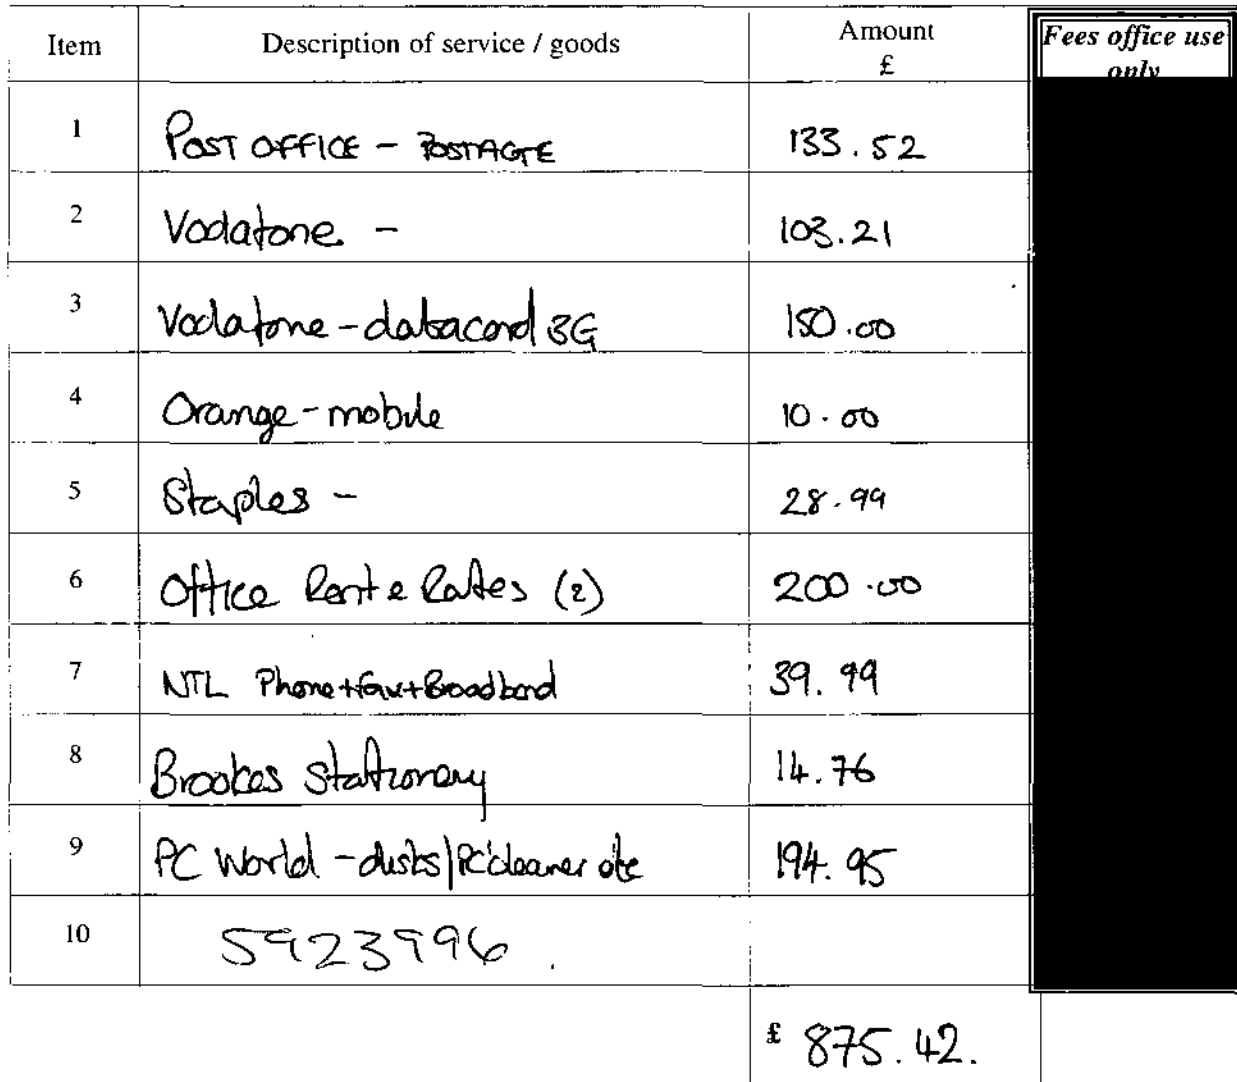 Item Description of service / goods Amount £ Fees office use only
1 POST OFFICE - POSTAGE 133.52
2 Vodafone - 103.21
3 Vodafone - datacard 3G 150.00
4 Orange - mobile 10.00
5 Staples - 28.99
6 Office Rent & Rates (2) 200.00
7 NTL Phone+Fax+Broadband 39.99
8 Brookes Stationery 14.76
9 PC World - disks/PC cleaner etc 194.95
10 5923996.
£ 875.42.